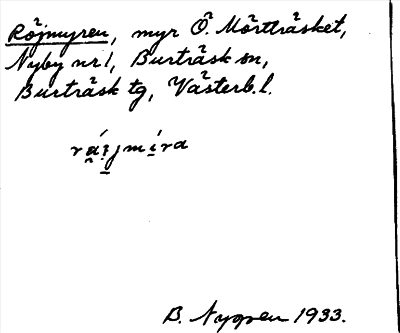 Röjmyren, myr Ö. Mörtträsket,
Nyby nr 1, Burträsk sn,
Burträsk tg, Västerb. l.
B. Nygren 1933.